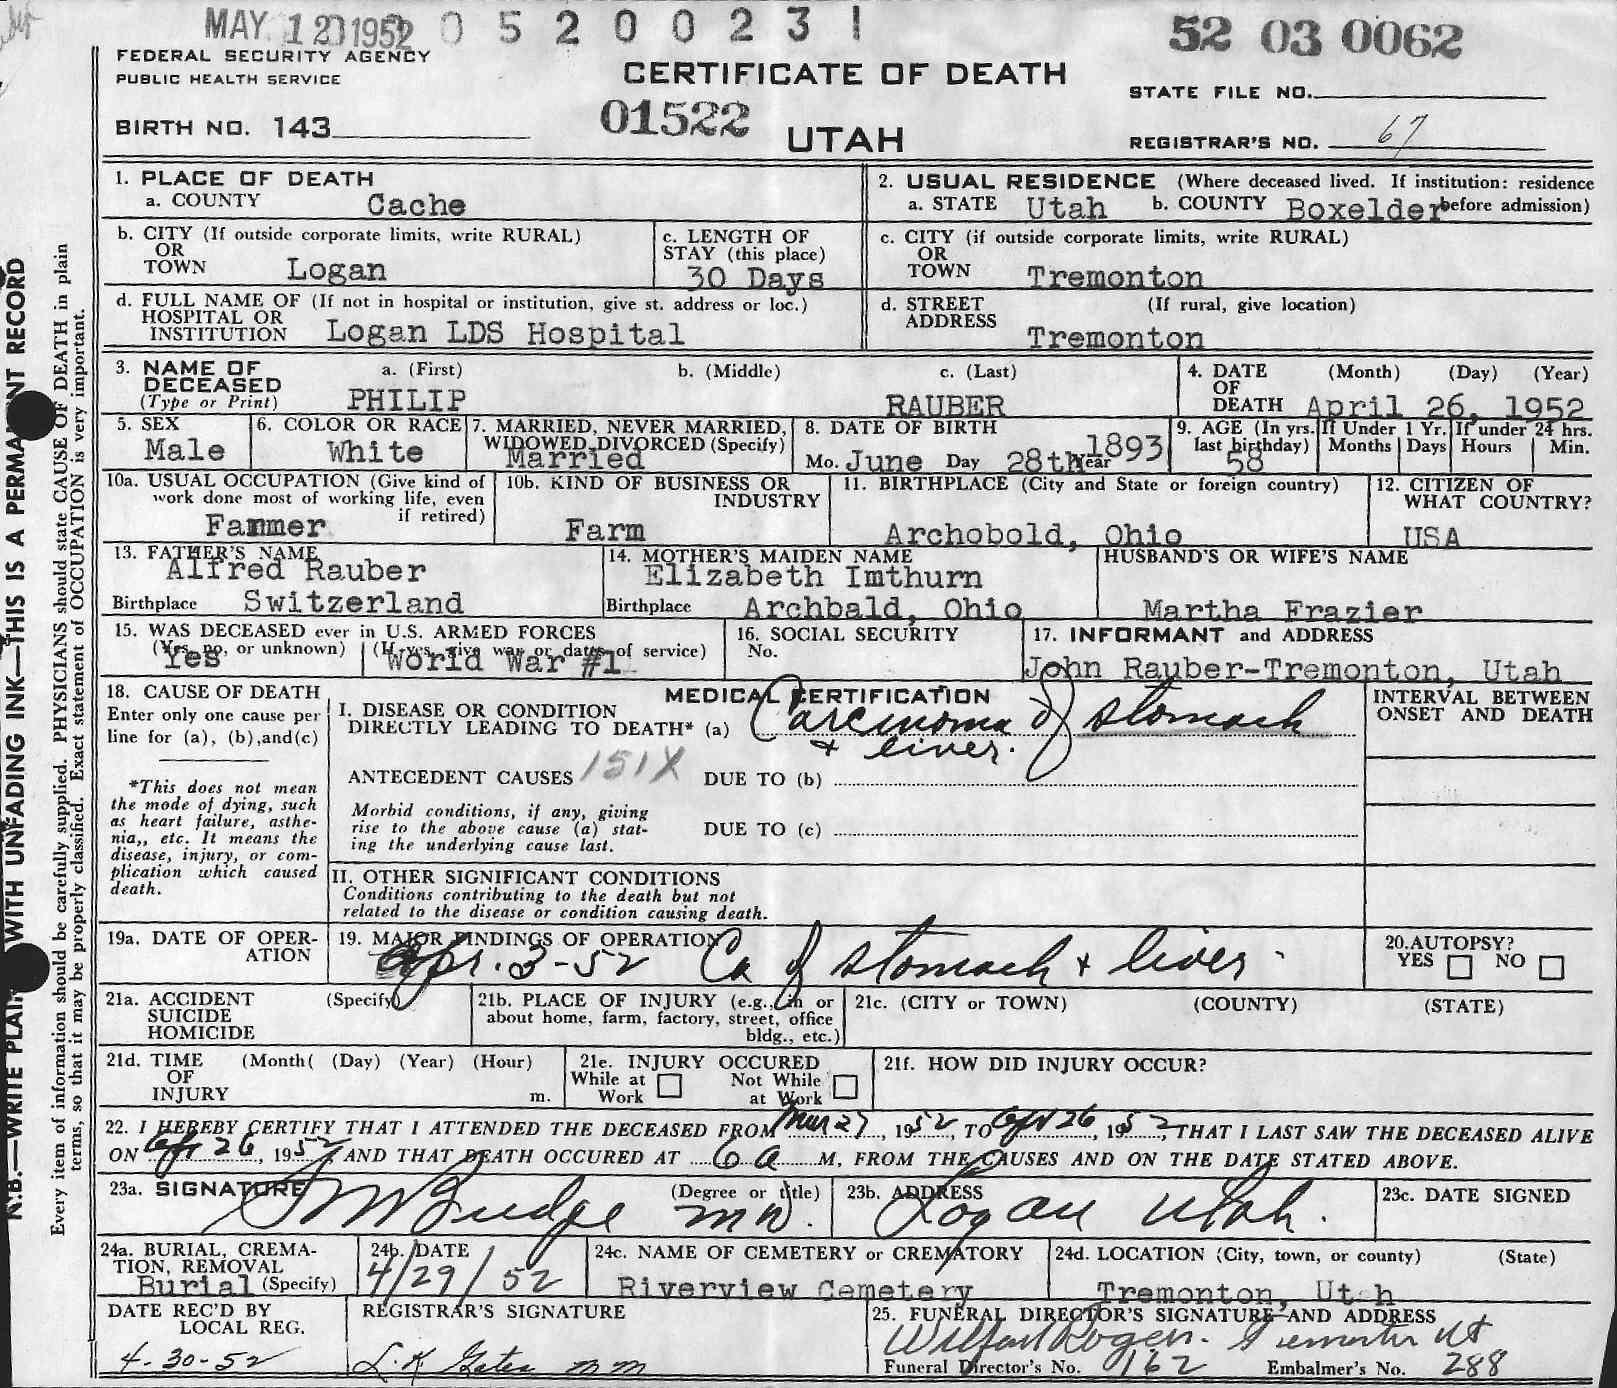 MAY 12 1952 0 5 2 0 0 2 3 1 52 03 0062
FEDERAL SECURITY AGENCY
PUBLIC HEALTH SERVICE
CERTIFICATE OF DEATH
STATE FILE NO.
BIRTH NO. 143
01522
UTAH
REGISTRAR'S NO. 67
N.B.—WRITE PLAINLY WITH UNFADING INK—THIS IS A PERMANENT RECORD
Every item of information should be carefully supplied. PHYSICIANS should state CAUSE OF DEATH in plain
terms, so that it may be properly classified. Exact statement of OCCUPATION is very important.
1. PLACE OF DEATH
a. COUNTY Cache
2. USUAL RESIDENCE (Where deceased lived. If institution: residence
a. STATE Utah b. COUNTY Boxelder before admission)
b. CITY (If outside corporate limits, write RURAL)
OR
TOWN Logan
c. LENGTH OF
STAY (this place)
30 Days
c. CITY (if outside corporate limits, write RURAL)
OR
TOWN Tremonton
d. FULL NAME OF (If not in hospital or institution, give st. address or loc.)
HOSPITAL OR
INSTITUTION Logan LDS Hospital
d. STREET (If rural, give location)
ADDRESS
Tremonton
3. NAME OF a. (First) b. (Middle) c. (Last)
DECEASED
(Type or Print) PHILIP RAUBER
4. DATE (Month) (Day) (Year)
OF
DEATH April 26, 1952
5. SEX
Male
6. COLOR OR RACE
White
7. MARRIED, NEVER MARRIED,
WIDOWED, DIVORCED (Specify)
Married
8. DATE OF BIRTH
Mo. June Day 28th Year 1893
9. AGE (In yrs. If Under 1 Yr. If under 24 hrs.
last birthday) Months Days Hours Min.
58
10a. USUAL OCCUPATION (Give kind of
work done most of working life, even
if retired)
Fammer
10b. KIND OF BUSINESS OR
INDUSTRY
Farm
11. BIRTHPLACE (City and State or foreign country)
Archobold, Ohio
12. CITIZEN OF
WHAT COUNTRY?
USA
13. FATHER'S NAME
Alfred Rauber
Birthplace Switzerland
14. MOTHER'S MAIDEN NAME
Elizabeth Imthurn
Birthplace Archbald, Ohio
HUSBAND'S OR WIFE'S NAME
Martha Frazier
15. WAS DECEASED ever in U.S. ARMED FORCES
(Yes, no, or unknown) (If yes, give war or dates of service)
Yes World War #1
16. SOCIAL SECURITY
No.
17. INFORMANT and ADDRESS
John Rauber-Tremonton, Utah
18. CAUSE OF DEATH
Enter only one cause per
line for (a), (b), and (c)
*This does not mean
the mode of dying, such
as heart failure, asthe-
nia,, etc. It means the
disease, injury, or com-
plication which caused
death.
MEDICAL CERTIFICATION
I. DISEASE OR CONDITION
DIRECTLY LEADING TO DEATH* (a) Carcinoma of stomach
+ liver.
ANTECEDENT CAUSES 151X DUE TO (b)
Morbid conditions, if any, giving
rise to the above cause (a) stat-
ing the underlying cause last.
DUE TO (c)
INTERVAL BETWEEN
ONSET AND DEATH
II. OTHER SIGNIFICANT CONDITIONS
Conditions contributing to the death but not
related to the disease or condition causing death.
19a. DATE OF OPER-
ATION
19. MAJOR FINDINGS OF OPERATION
Apr. 3-52 Ca of stomach + liver.
20. AUTOPSY?
YES NO
21a. ACCIDENT (Specify)
SUICIDE
HOMICIDE
21b. PLACE OF INJURY (e.g., in or
about home, farm, factory, street, office
bldg., etc.)
21c. (CITY or TOWN) (COUNTY) (STATE)
21d. TIME (Month( (Day) (Year) (Hour)
OF
INJURY m.
21e. INJURY OCCURED
While at Not While
Work at Work
21f. HOW DID INJURY OCCUR?
22. I HEREBY CERTIFY THAT I ATTENDED THE DECEASED FROM Mar 27, 1952, TO Apr 26, 1952, THAT I LAST SAW THE DECEASED ALIVE
ON Apr 26, 1952 AND THAT DEATH OCCURED AT 6 a M, FROM THE CAUSES AND ON THE DATE STATED ABOVE.
23a. SIGNATURE (Degree or title)
Budge MD.
23b. ADDRESS
Logan Utah.
23c. DATE SIGNED
24a. BURIAL, CREMA-
TION, REMOVAL
Burial (Specify)
24b. DATE
4/29/52
24c. NAME OF CEMETERY or CREMATORY
Riverview Cemetery
24d. LOCATION (City, town, or county) (State)
Tremonton, Utah
DATE REC'D BY
LOCAL REG.
4-30-52
REGISTRAR'S SIGNATURE
25. FUNERAL DIRECTOR'S SIGNATURE AND ADDRESS
Tremonton Ut
Funeral Director's No. 162 Embalmer's No. 288